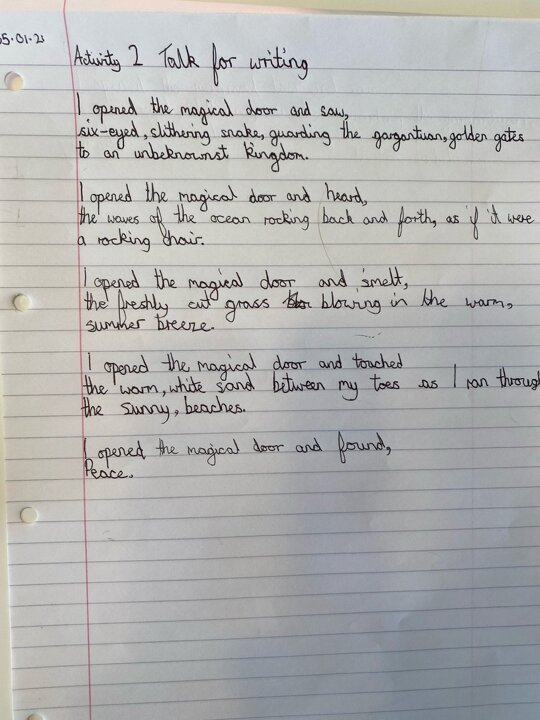 5.01.21
Activity 2 Talk for writing
I opened the magical door and saw,
six-eyed, slithering snake, guarding the gargantuan, golden gates
to an unbeknownst kingdom.
I opened the magical door and heard,
the waves of the ocean rocking back and forth, as if it were
a rocking chair.
I opened the magical door and smelt,
the freshly cut grass blowing in the warm,
summer breeze.
I opened the magical door and touched
the warm, white sand between my toes as I ran through
the sunny, beaches.
I opened the magical door and found,
Peace.